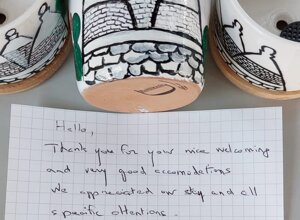 Hello,
Thank you for your nice welcoming
and very good accomodations
We appreciated our stay and all
specific attentions.